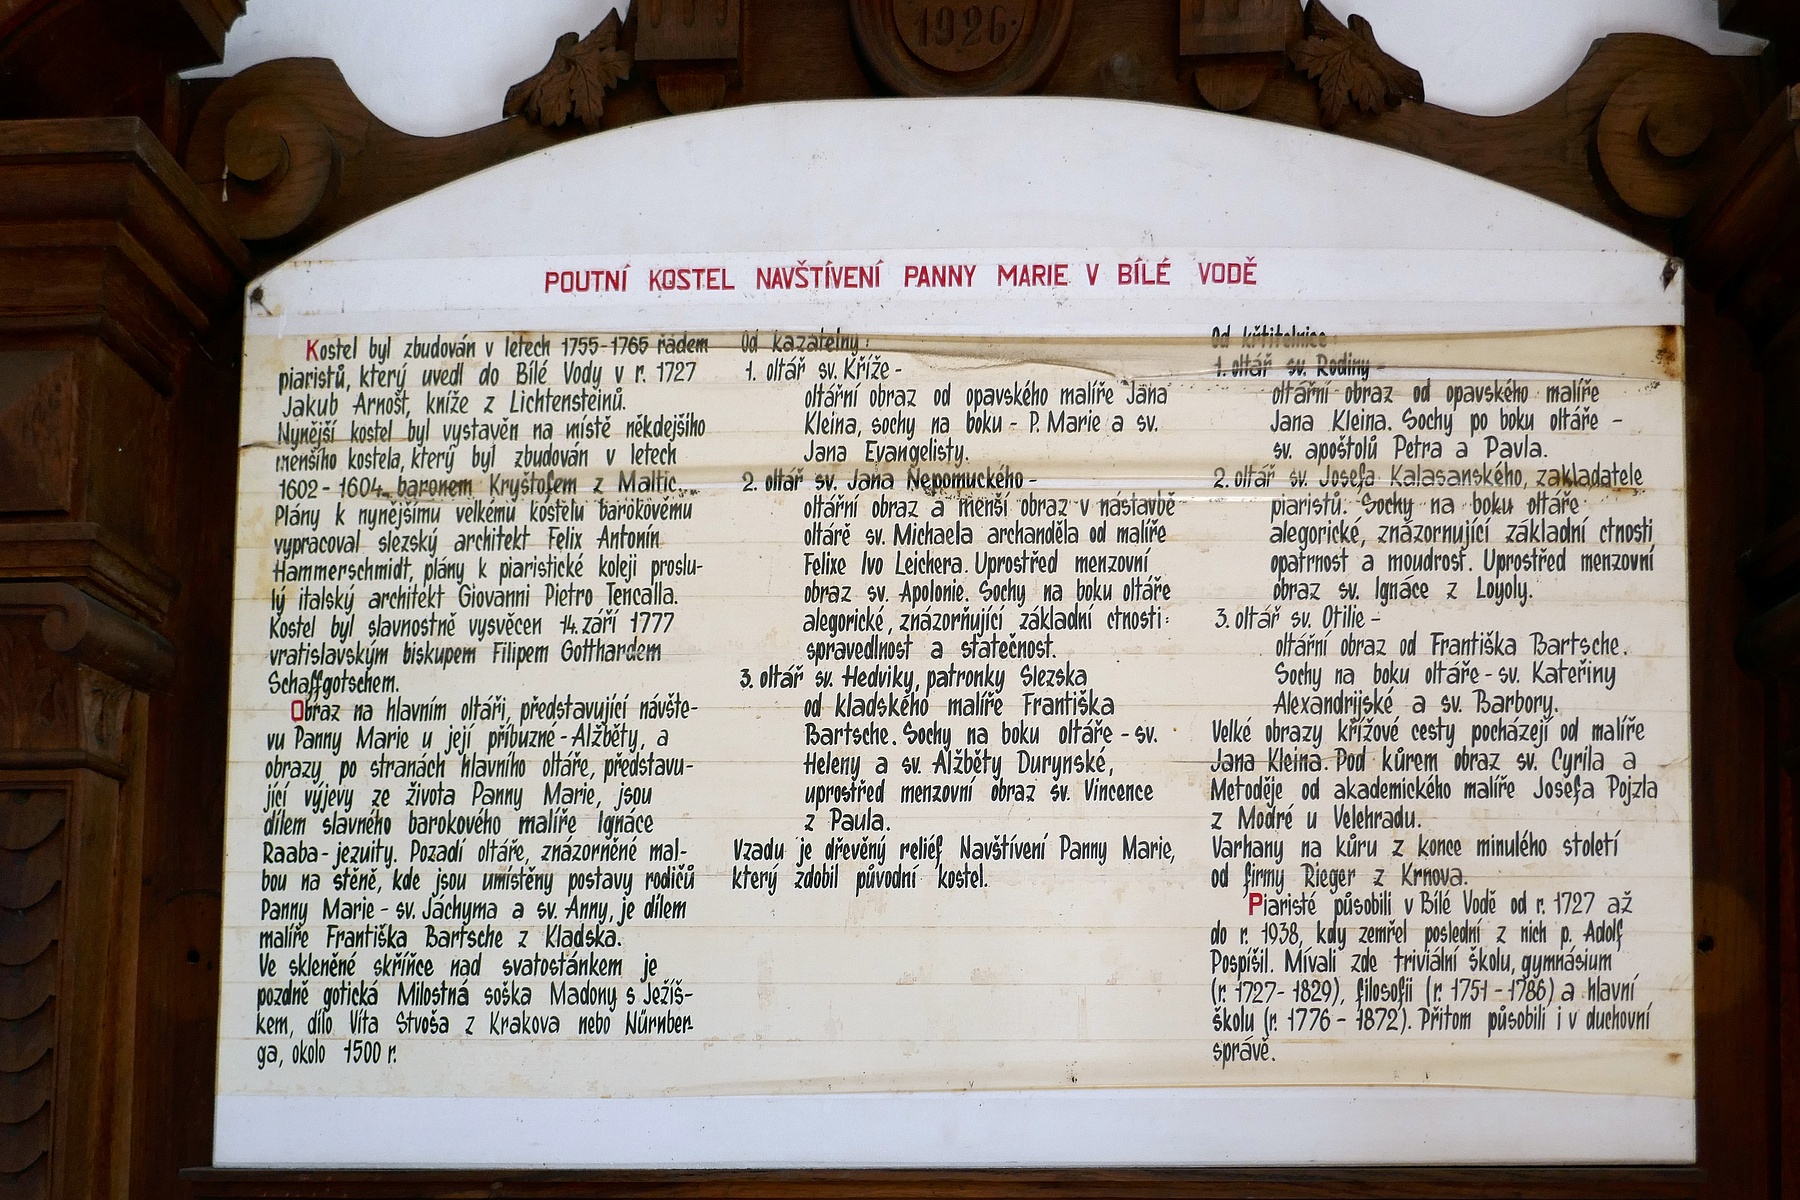 1926
POUTNÍ KOSTEL NAVŠTÍVENÍ PANNY MARIE V BÍLÉ VODĚ
Kostel byl zbudován v letech 1755-1765 řádem
piaristů, který uvedl do Bílé Vody v r. 1727
Jakub Arnošt, kníže z Lichtensteinů.
Nynější kostel byl vystavěn na místě někdejšího
menšího kostela, který byl zbudován v letech
1602-1604 baronem Kryštofem z Maltic.
Plány k nynějšímu velkému kostelu barokovému
vypracoval slezský architekt Felix Antonín
Hammerschmidt, plány k piaristické koleji proslu-
lý italský architekt Giovanni Pietro Tencalla.
Kostel byl slavnostně vysvěcen 14. září 1777
vratislavským biskupem Filipem Gotthardem
Schaffgotschem.
Obraz na hlavním oltáři, představující návště-
vu Panny Marie u její příbuzné - Alžběty, a
obrazy po stranách hlavního oltáře, představu-
jící výjevy ze života Panny Marie, jsou
dílem slavného barokového malíře Ignáce
Raaba - jezuity. Pozadí oltáře, znázorněné mal-
bou na stěně, kde jsou umístěny postavy rodičů
Panny Marie - sv. Jáchyma a sv. Anny, je dílem
malíře Františka Bartsche z Kladska.
Ve skleněné skříňce nad svatostánkem je
pozdně gotická Milostná soška Madony s Ježíš-
kem, dílo Víta Stvoša z Krakova nebo Nürnber-
ga, okolo 1500 r.
Od kazatelny:
1. oltář sv. Kříže -
oltářní obraz od opavského malíře Jana
Kleina, sochy na boku - P. Marie a sv.
Jana Evangelisty.
2. oltář sv. Jana Nepomuckého -
oltářní obraz a menší obraz v nástavbě
oltáře sv. Michaela archanděla od malíře
Felixe Ivo Leichera. Uprostřed menzovní
obraz sv. Apolonie. Sochy na boku oltáře
alegorické, znázorňující základní ctnosti:
spravedlnost a statečnost.
3. oltář sv. Hedviky, patronky Slezska
od kladského malíře Františka
Bartsche. Sochy na boku oltáře - sv.
Heleny a sv. Alžběty Durynské,
uprostřed menzovní obraz sv. Vincence
z Paula.
Vzadu je dřevěný reliéf Navštívení Panny Marie,
který zdobil původní kostel.
Od křtitelnice:
1. oltář sv. Rodiny -
oltářní obraz od opavského malíře
Jana Kleina. Sochy po boku oltáře -
sv. apoštolů Petra a Pavla.
2. oltář sv. Josefa Kalasanského, zakladatele
piaristů. Sochy na boku oltáře
alegorické, znázornující základní ctnosti
opatrnost a moudrost. Uprostřed menzovní
obraz sv. Ignáce z Loyoly.
3. oltář sv. Otilie -
oltářní obraz od Františka Bartsche.
Sochy na boku oltáře - sv. Kateřiny
Alexandrijské a sv. Barbory.
Velké obrazy křížové cesty pocházejí od malíře
Jana Kleina. Pod kůrem obraz sv. Cyrila a
Metoděje od akademického malíře Josefa Pojzla
z Modré u Velehradu.
Varhany na kůru z konce minulého století
od firmy Rieger z Krnova.
Piaristé působili v Bílé Vodě od r. 1727 až
do r. 1938, kdy zemřel poslední z nich p. Adolf
Pospíšil. Mívali zde triviální školu, gymnásium
(r. 1727-1829), filosofii (r. 1751-1786) a hlavní
školu (r. 1776-1872). Přitom působili i v duchovní
správě.